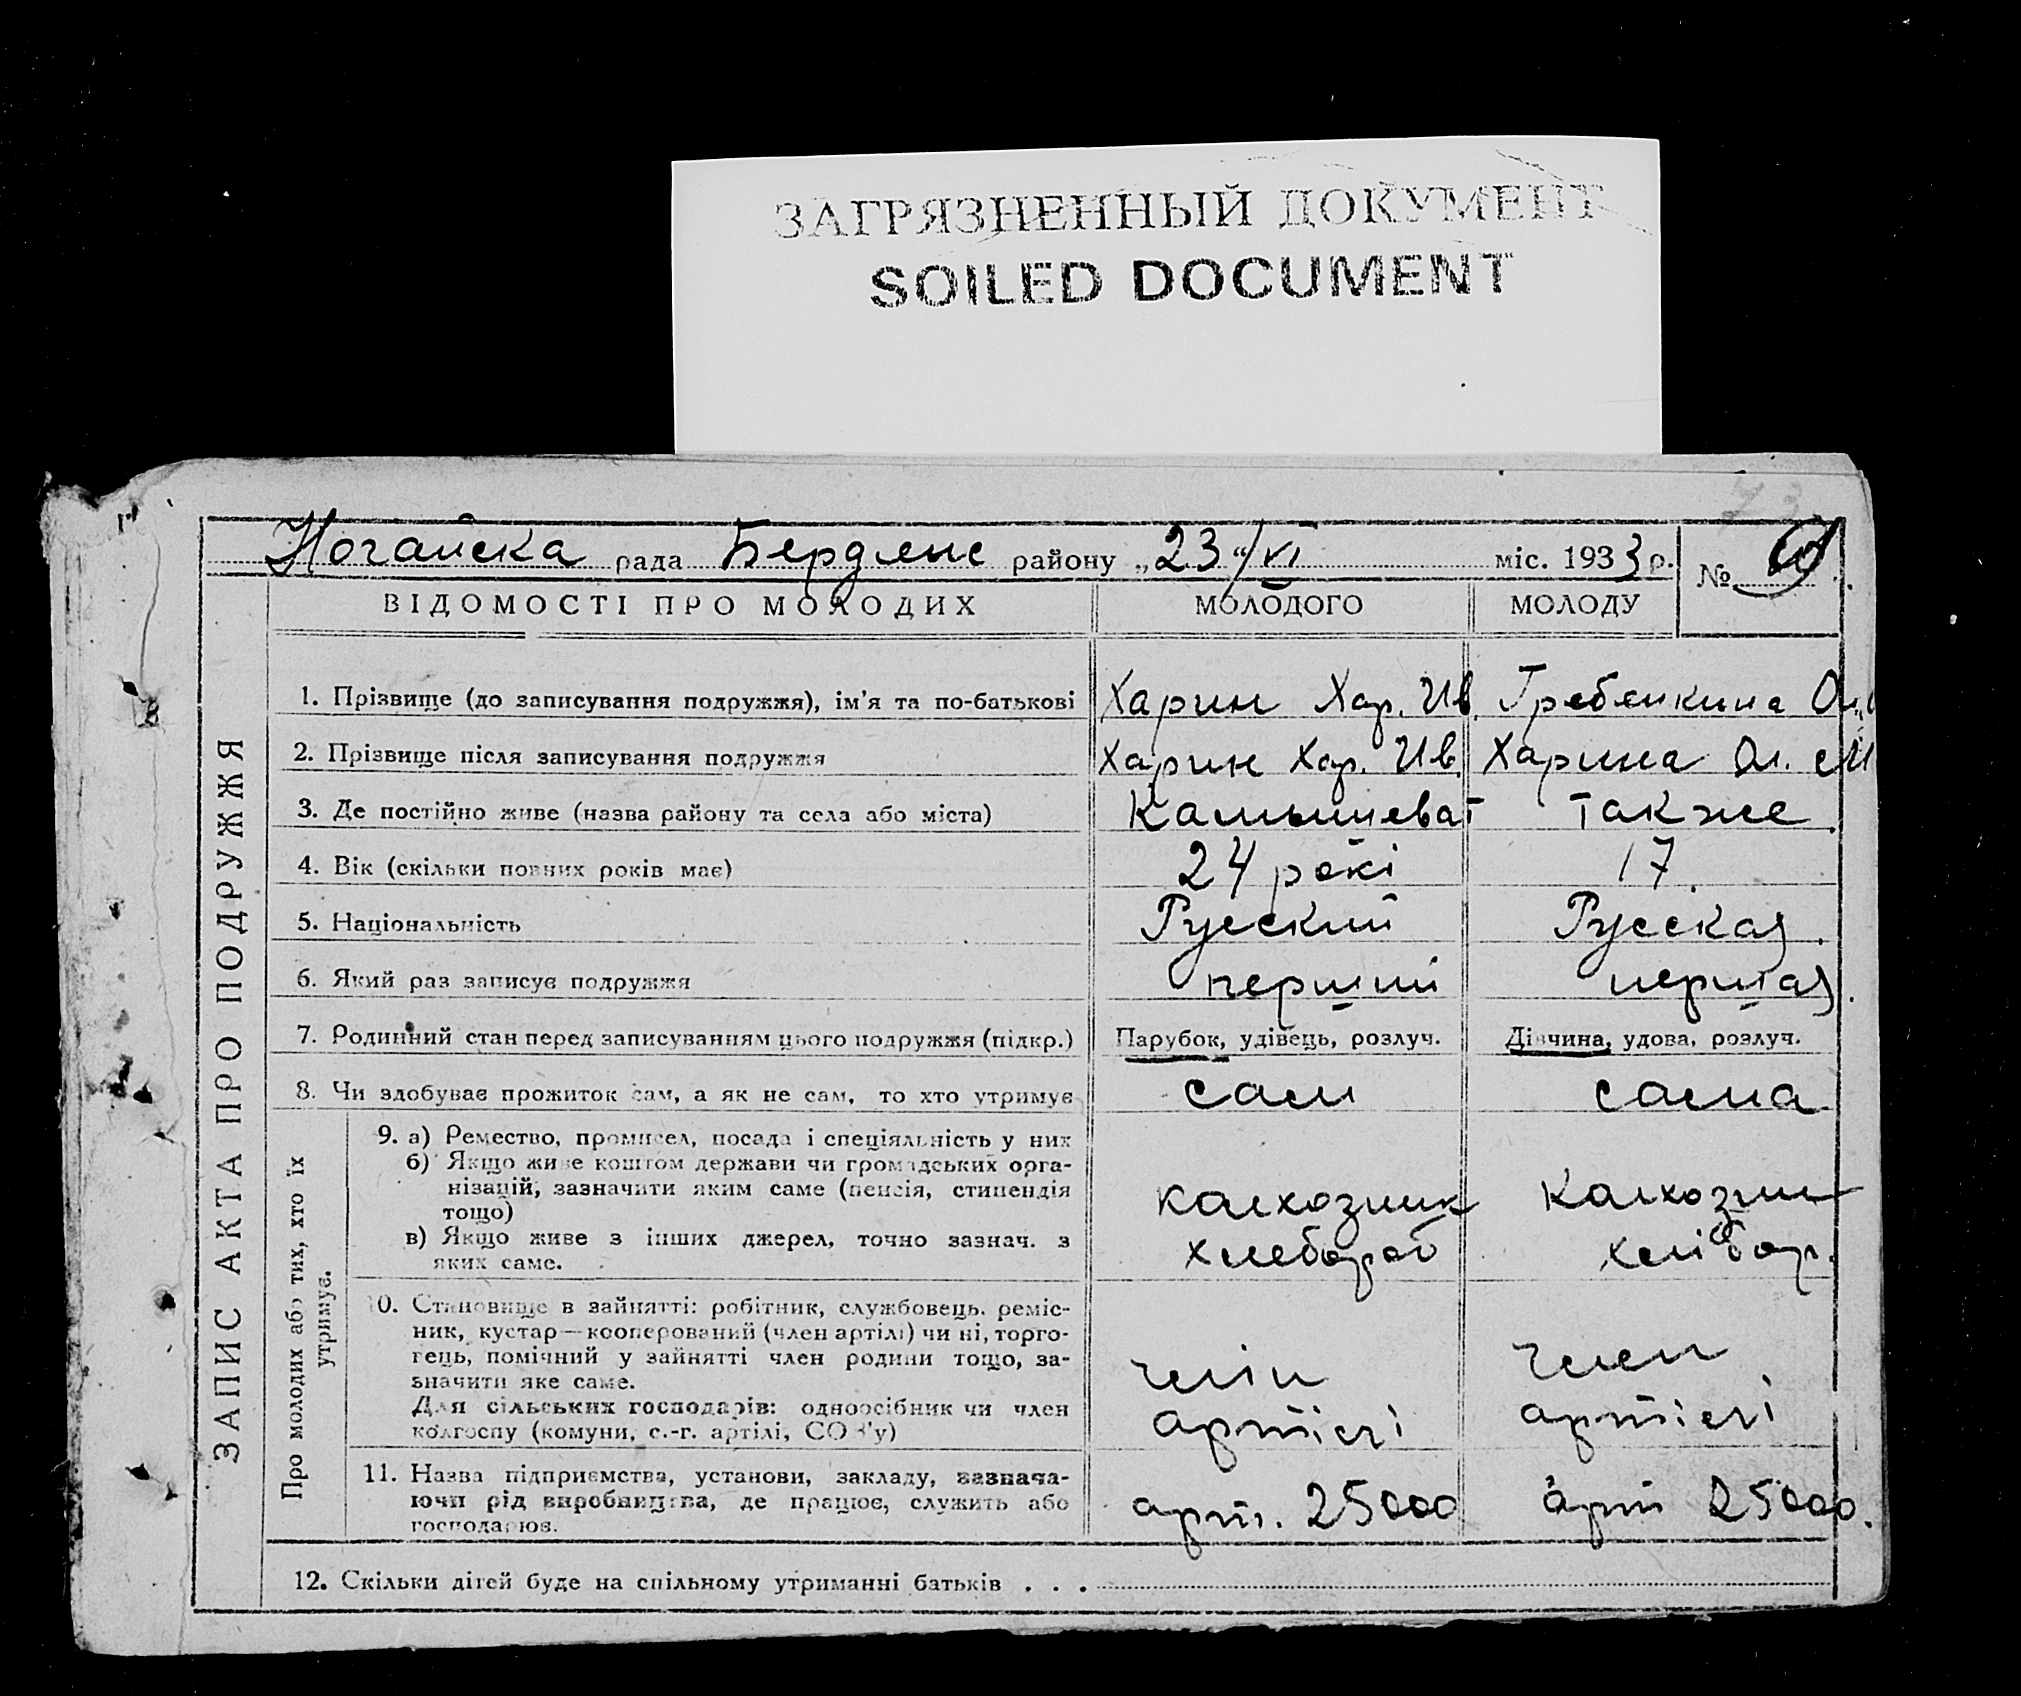 ЗАГРЯЗНЕННЫЙ ДОКУМЕНТ
SOILED DOCUMENT
Ногайска рада Бердянс району „23“/VI міс. 1933 р. №
ВІДОМОСТІ ПРО МОЛОДИХ МОЛОДОГО МОЛОДУ
ЗАПИС АКТА ПРО ПОДРУЖЖЯ
1. Прізвище (до записування подружжя), ім’я та по-батькові Харин Хар. Ив. Гребенкина Ол.
2. Прізвище після записування подружжя Харин Хар. Ив. Харина Ол. М
3. Де постійно живе (назва району та села або міста) Камышеват также
4. Вік (скільки повних років має) 24 рокі 17.
5. Національність Русский Русская.
6. Який раз записує подружжя перший першая.
7. Родинний стан перед записуванням цього подружжя (підкр.) Парубок, удівець, розлуч. Дівчина, удова, розлуч.
8. Чи здобуває прожиток сам, а як не сам, то хто утримує сам сама
Про молодих або тих, хто їх
утримує.
9. а) Ремество, промисел, посада і спеціяльність у них
б) Якщо живе коштом держави чи громадських орга-
нізацій, зазначити яким саме (пенсія, стипендія
тощо) колхозник колхозни
в) Якщо живе з інших джерел, точно зазнач. з
яких саме. хлебороб хлібор.
10. Становище в зайнятті: робітник, службовець, реміс-
ник, кустар—кооперований (член артілі) чи ні, торго-
вець, помічний у зайнятті член родини тощо, за-
значити яке саме. член член
Для сільських господарів: одноосібник чи член
колгоспу (комуни, с.-г. артілі, СОЗ’у) артілі артілі
11. Назва підприємства, установи, закладу, зазнача-
ючи рід виробництва, де працює, служить або
господарює. арт. 25000 арт 25000.
12. Скільки дітей буде на спільному утриманні батьків . . .